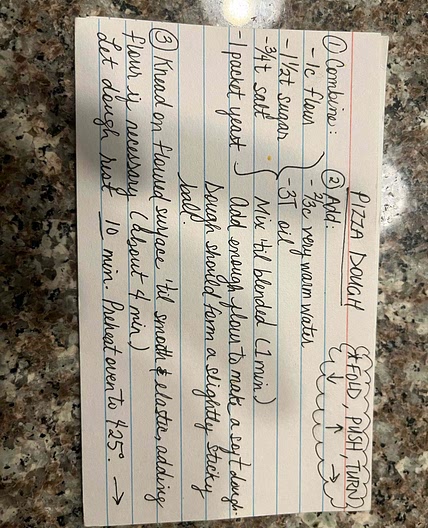 PIZZA DOUGH (*FOLD, PUSH, TURN)
① Combine: ② Add: ↓ ↑ →
- 1c flour - 2/3c very warm water
- 1 1/2t sugar - 3T oil
- 3/4t salt Mix til blended (1 min.)
- 1 packet yeast Add enough flour to make a soft dough.
Dough should form a slightly sticky
ball.
③ Knead on floured surface 'til smooth & elastic, adding
flour if necessary (about 4 min.)
Let dough rest 10 min. Preheat oven to 425°. →